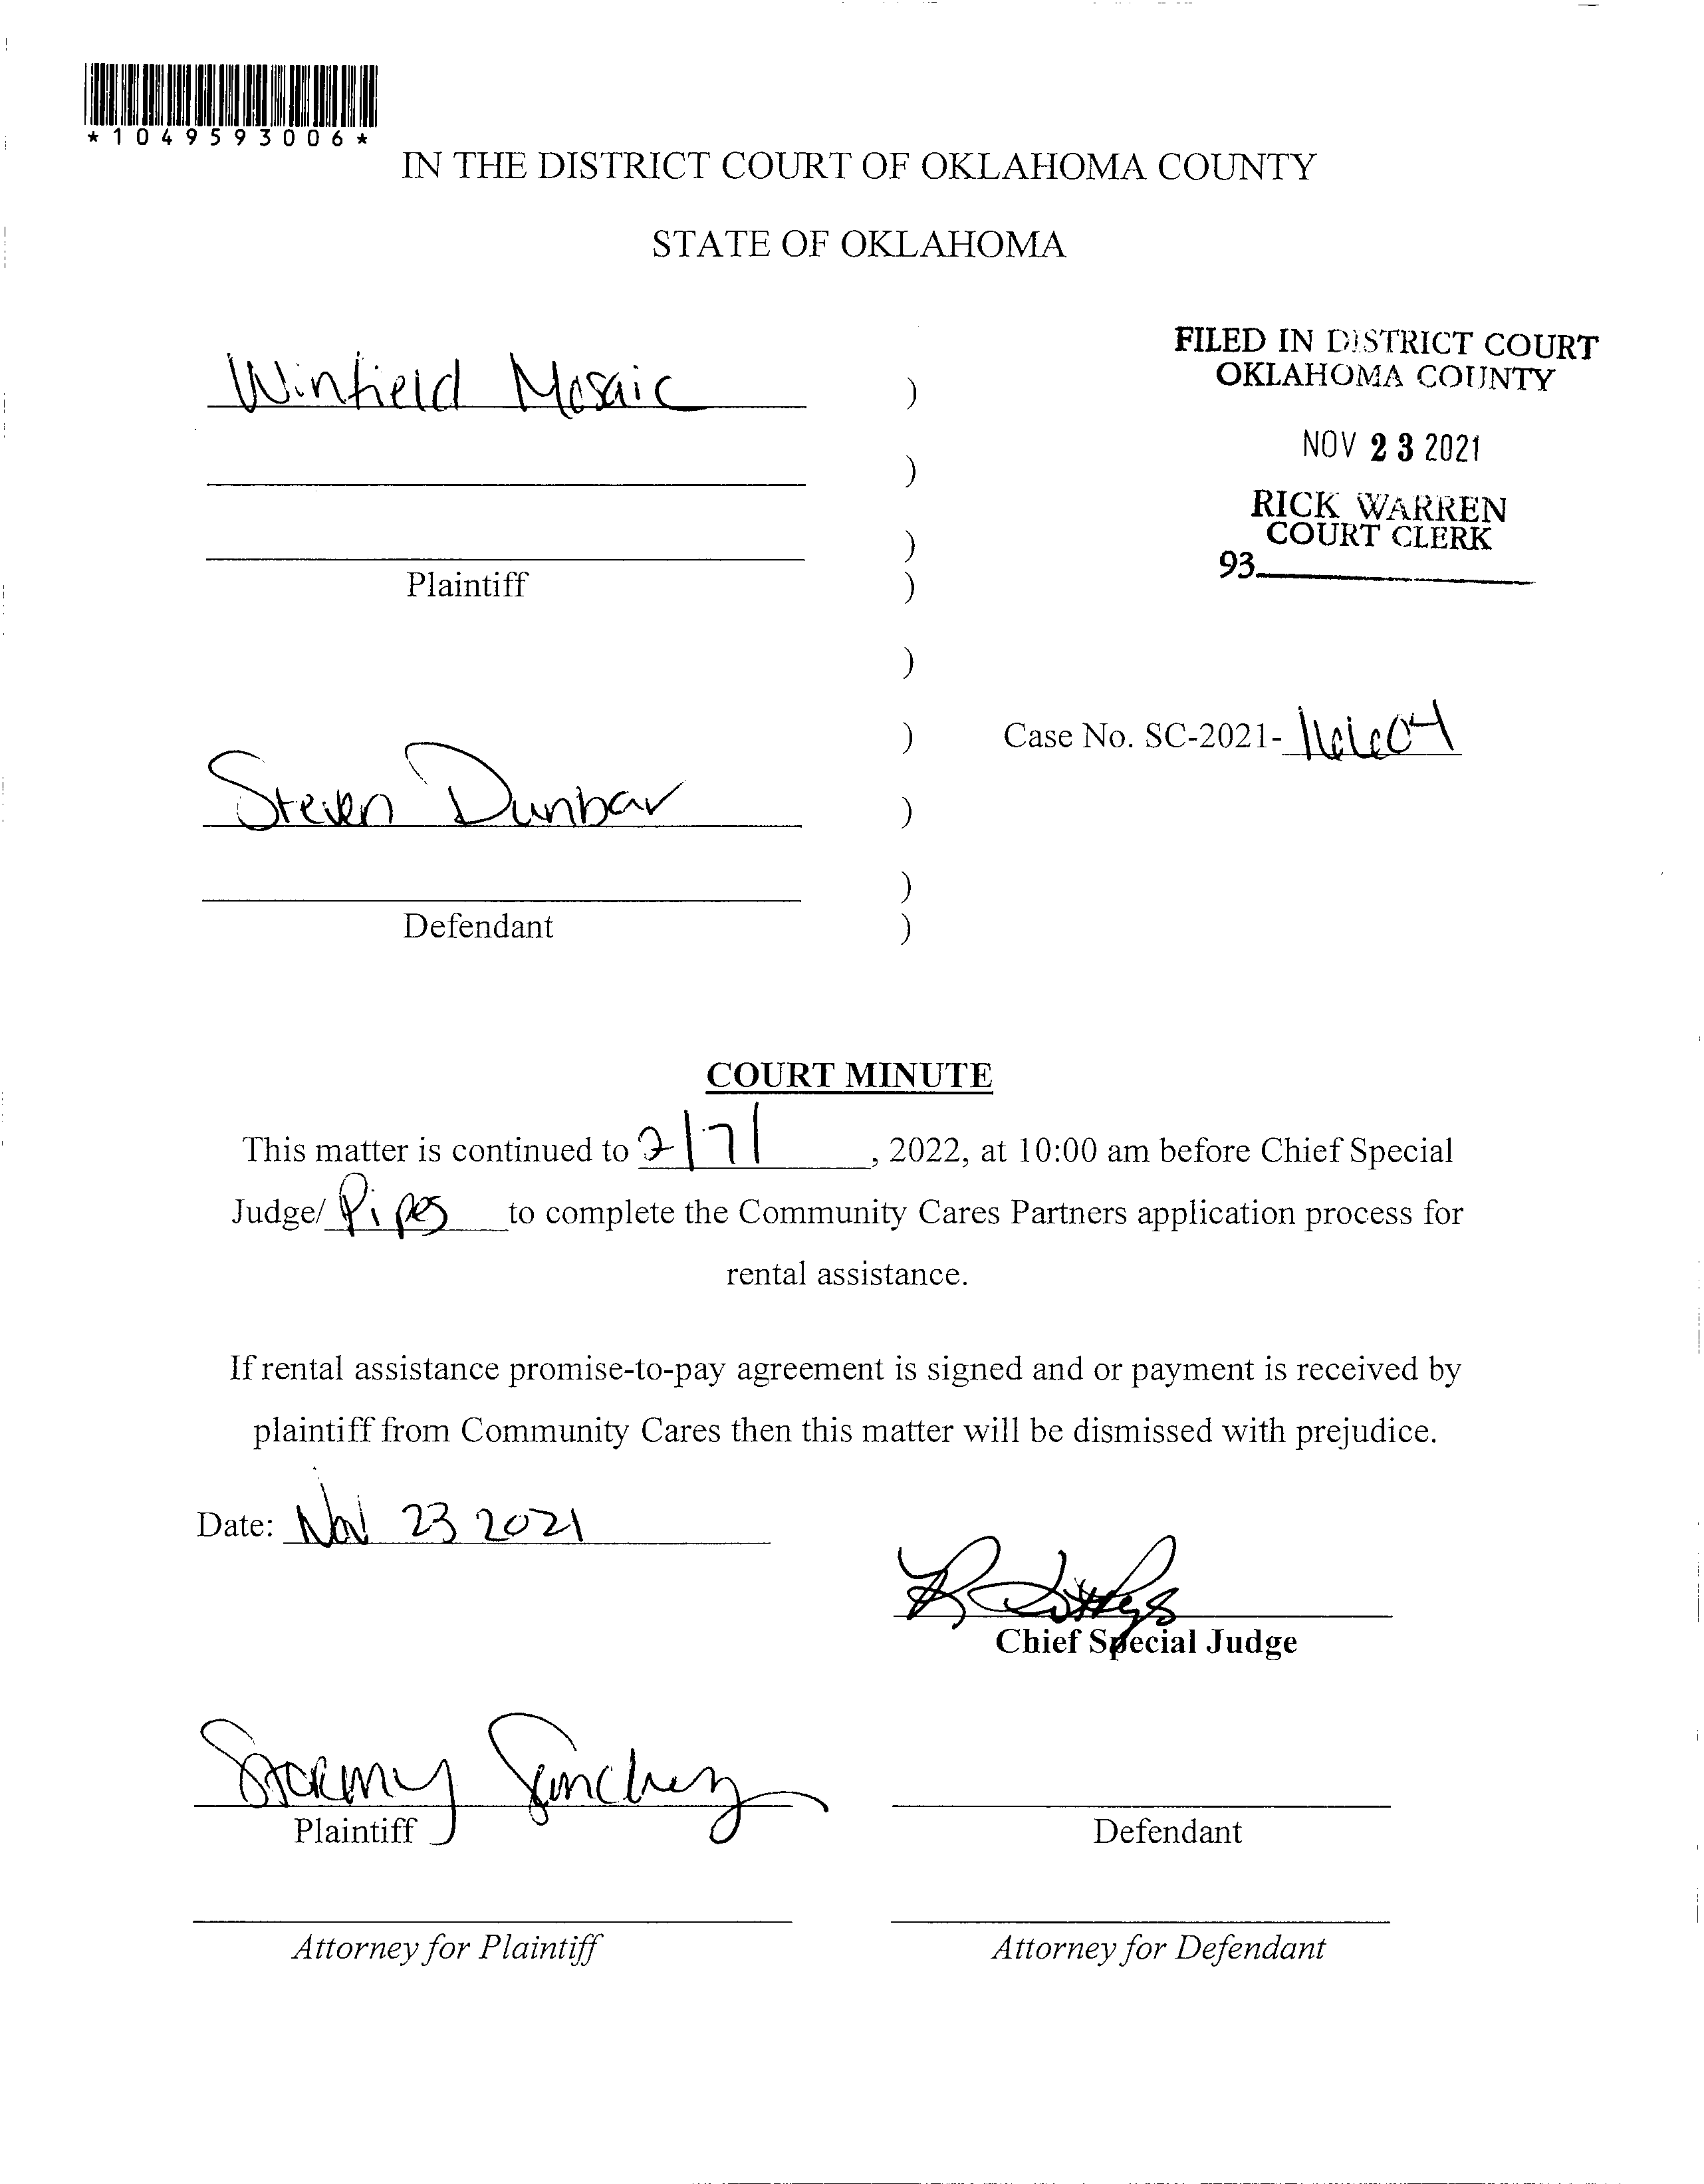 *1049593006*
IN THE DISTRICT COURT OF OKLAHOMA COUNTY
STATE OF OKLAHOMA
FILED IN DISTRICT COURT
OKLAHOMA COUNTY
NOV 23 2021
RICK WARREN
COURT CLERK
93
Winfield Mosaic )
)
)
Plaintiff )
)
) Case No. SC-2021-16604
Steven Dunbar )
)
Defendant )
COURT MINUTE
This matter is continued to 2/7/, 2022, at 10:00 am before Chief Special
Judge/ Pipes to complete the Community Cares Partners application process for
rental assistance.
If rental assistance promise-to-pay agreement is signed and or payment is received by
plaintiff from Community Cares then this matter will be dismissed with prejudice.
Date: Nov 23 2021
Chief Special Judge
Stormy Sanchez
Plaintiff
Defendant
Attorney for Plaintiff
Attorney for Defendant